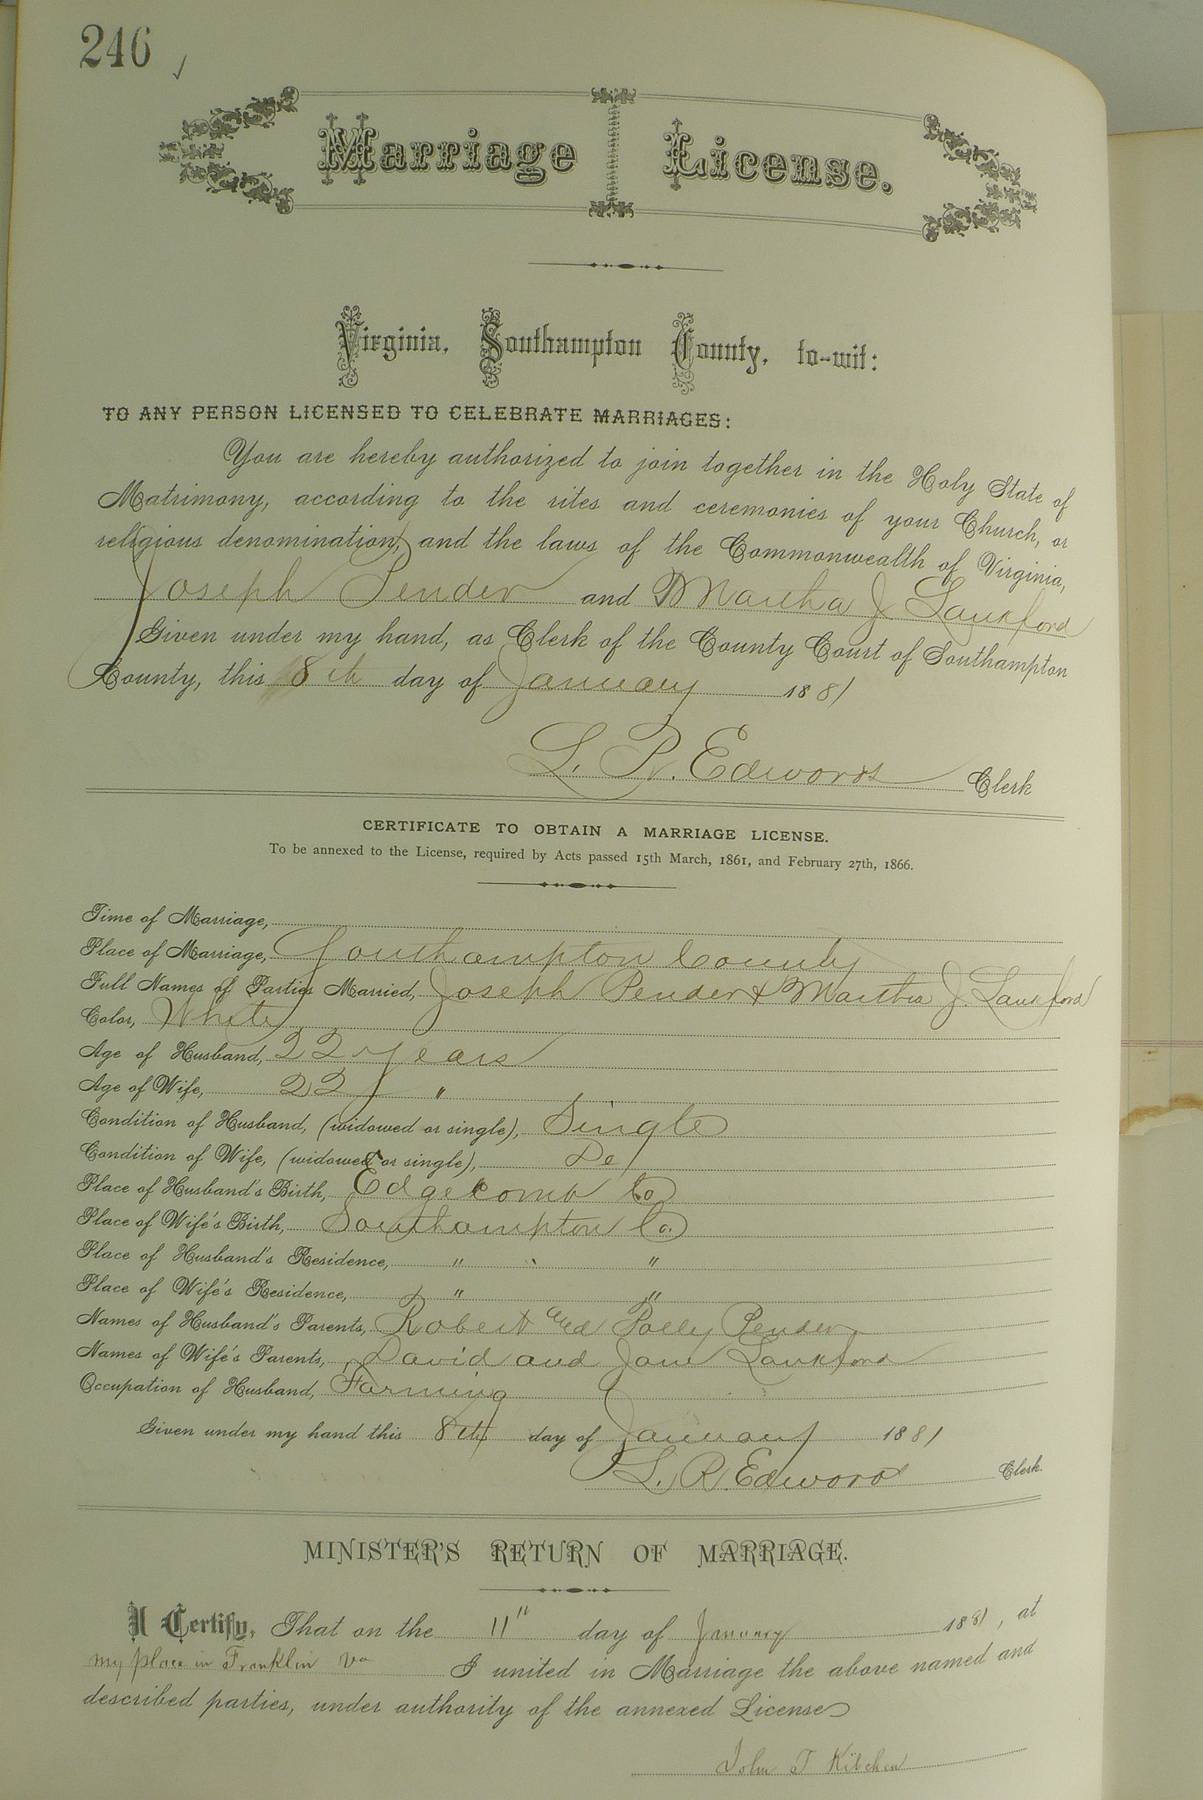 246 ✓
Marriage License.
Virginia, Southampton County, to-wit:
TO ANY PERSON LICENSED TO CELEBRATE MARRIAGES:
You are hereby authorized to join together in the Holy State of
Matrimony, according to the rites and ceremonies of your Church, or
religious denomination, and the laws of the Commonwealth of Virginia,
Joseph Pender and Martha J Lankford
Given under my hand, as Clerk of the County Court of Southampton
County, this 8th day of January 1881
L. R. Edwards Clerk
CERTIFICATE TO OBTAIN A MARRIAGE LICENSE.
To be annexed to the License, required by Acts passed 15th March, 1861, and February 27th, 1866.
Time of Marriage,
Place of Marriage, Southampton County
Full Names of Parties Married, Joseph Pender & Martha J. Lankford
Color, White
Age of Husband, 22 years
Age of Wife, 22 "
Condition of Husband, (widowed or single), Single
Condition of Wife, (widowed or single), Do
Place of Husband's Birth, Edgecomb Co
Place of Wife's Birth, Southampton Co.
Place of Husband's Residence, " " "
Place of Wife's Residence, " "
Names of Husband's Parents, Robert and Polly Pender
Names of Wife's Parents, David and Jane Lankford
Occupation of Husband, Farming
Given under my hand this 8th day of January 1881
L. R. Edwards Clerk.
MINISTER'S RETURN OF MARRIAGE.
I Certify, That on the 11" day of January 1881, at
my place in Franklin Va I united in Marriage the above named and
described parties, under authority of the annexed License
John T Kitchen